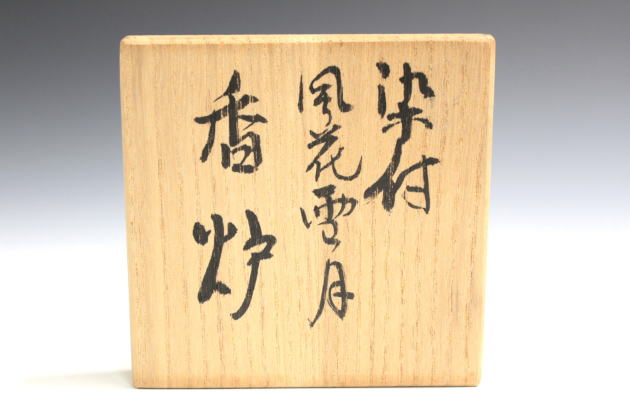 染付
風花雪月
香炉